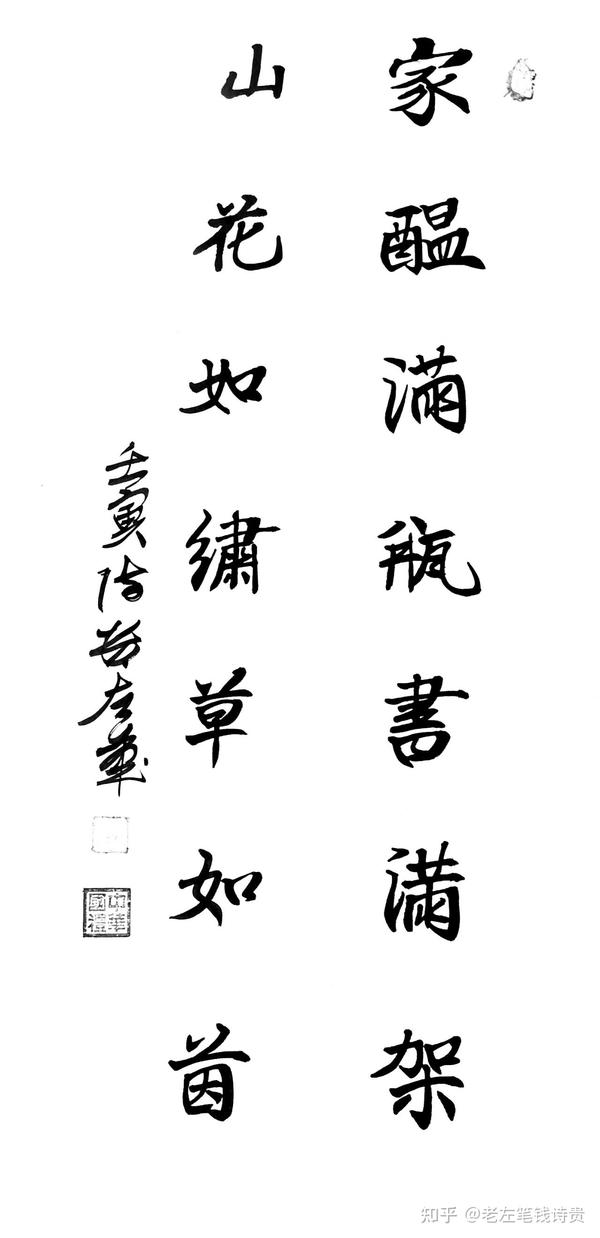 家醖滿瓶書滿架
山花如繡草如茵
壬寅
中華國禮
知乎 @老左笔钱诗贵